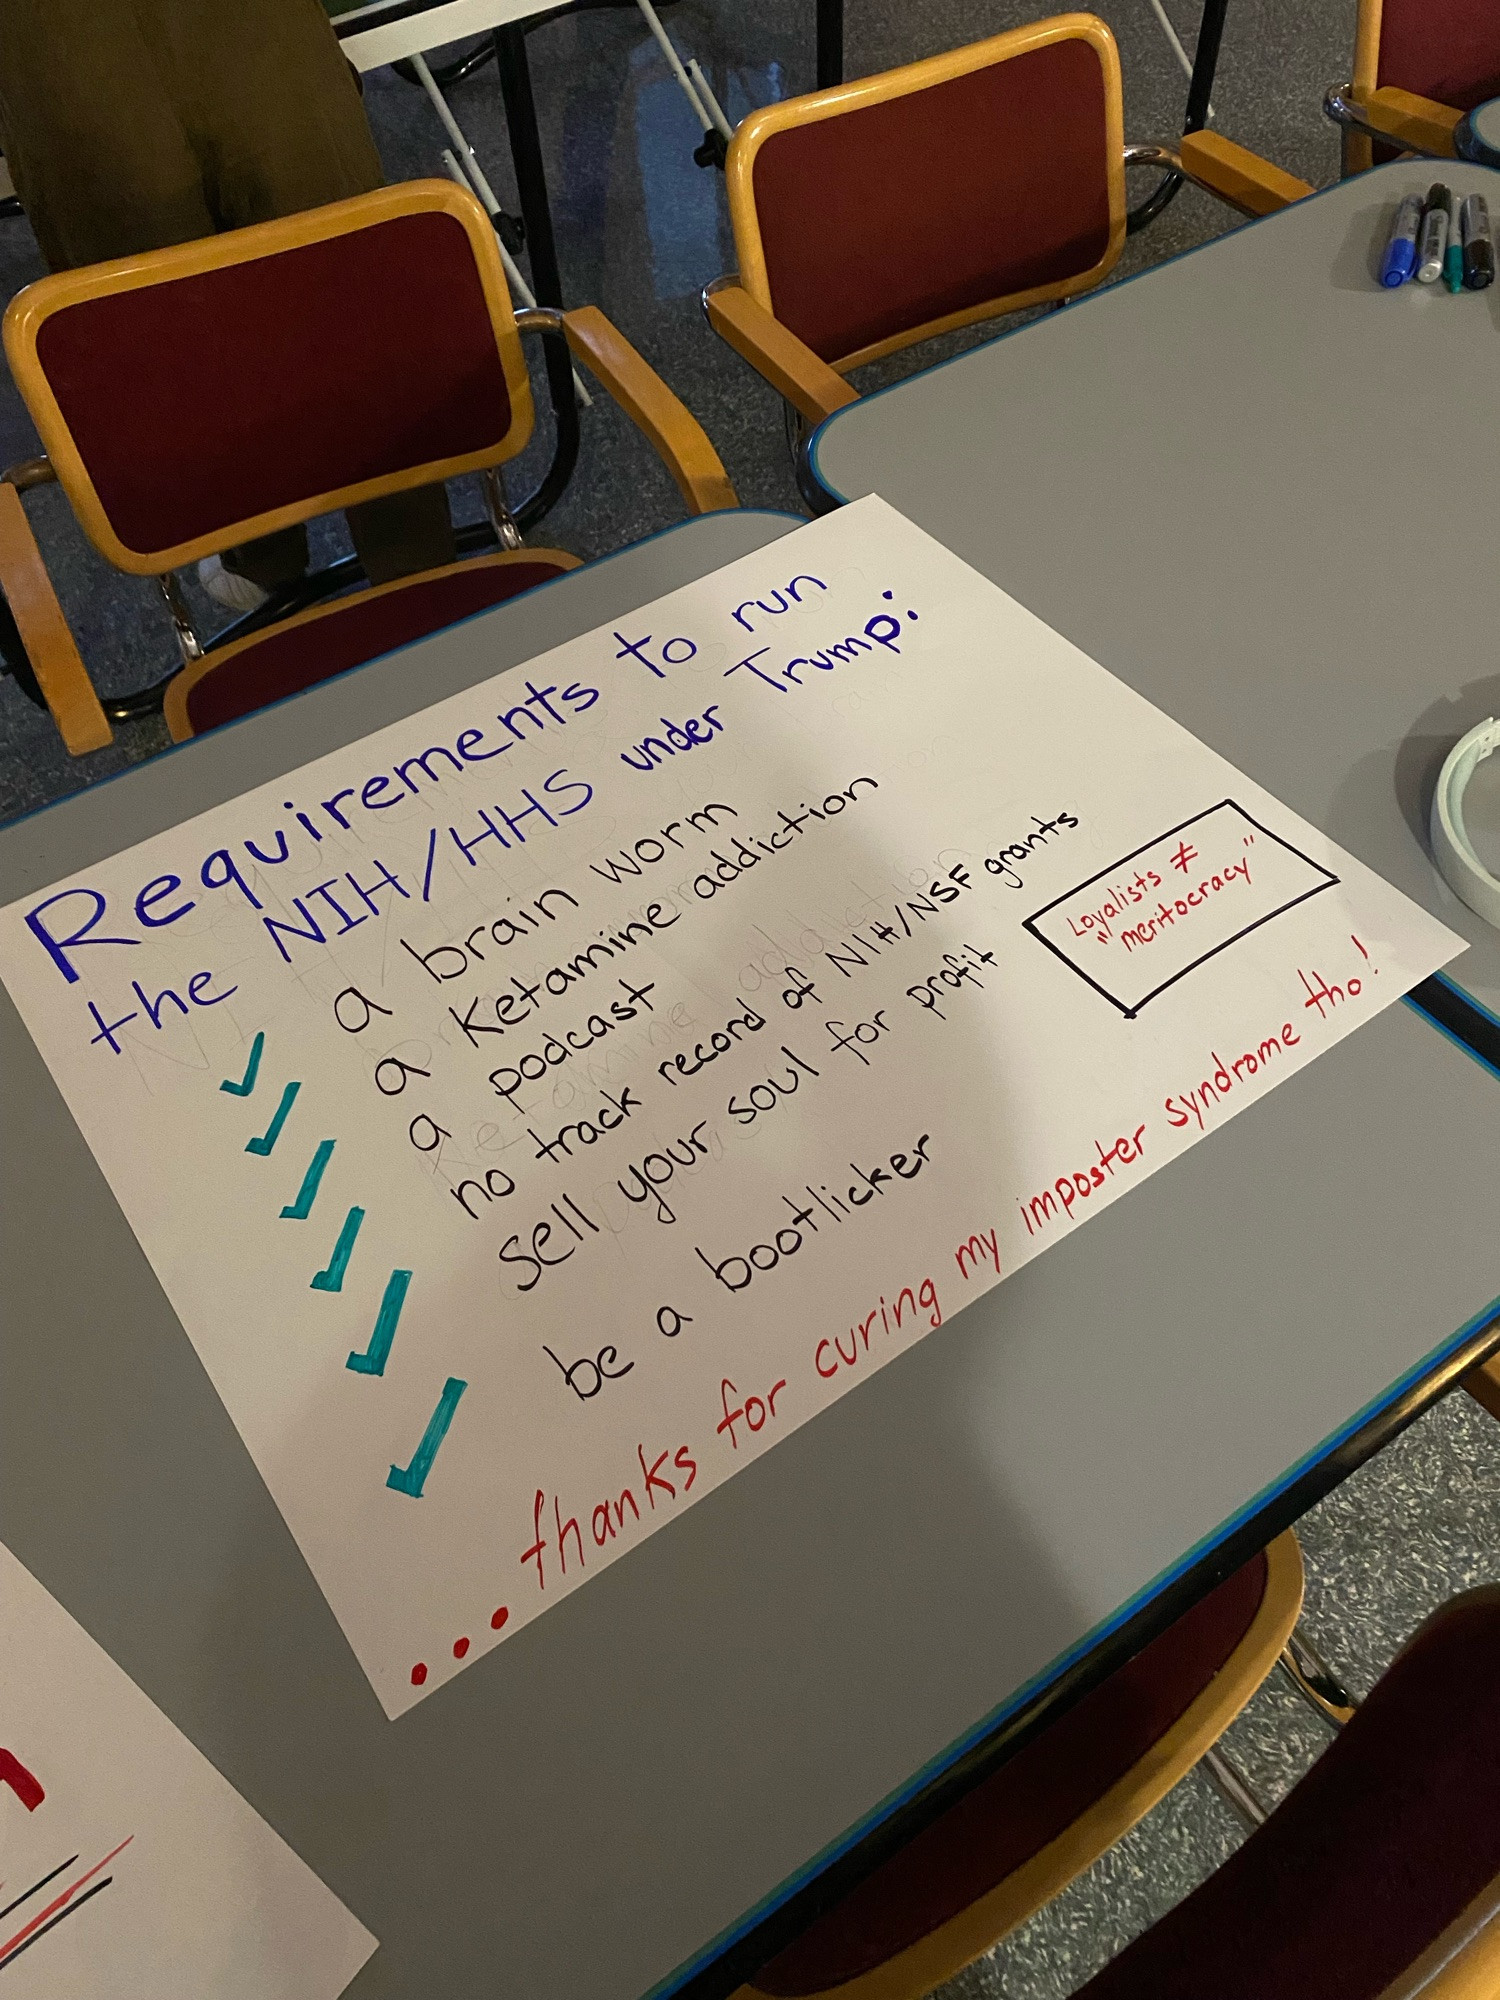 Requirements to run
the NIH/HHS under Trump:
a brain worm
a ketamine addiction
a podcast
no track record of NIH/NSF grants
sell your soul for profit
be a bootlicker
Loyalists ≠
"meritocracy"
... thanks for curing my imposter syndrome tho!